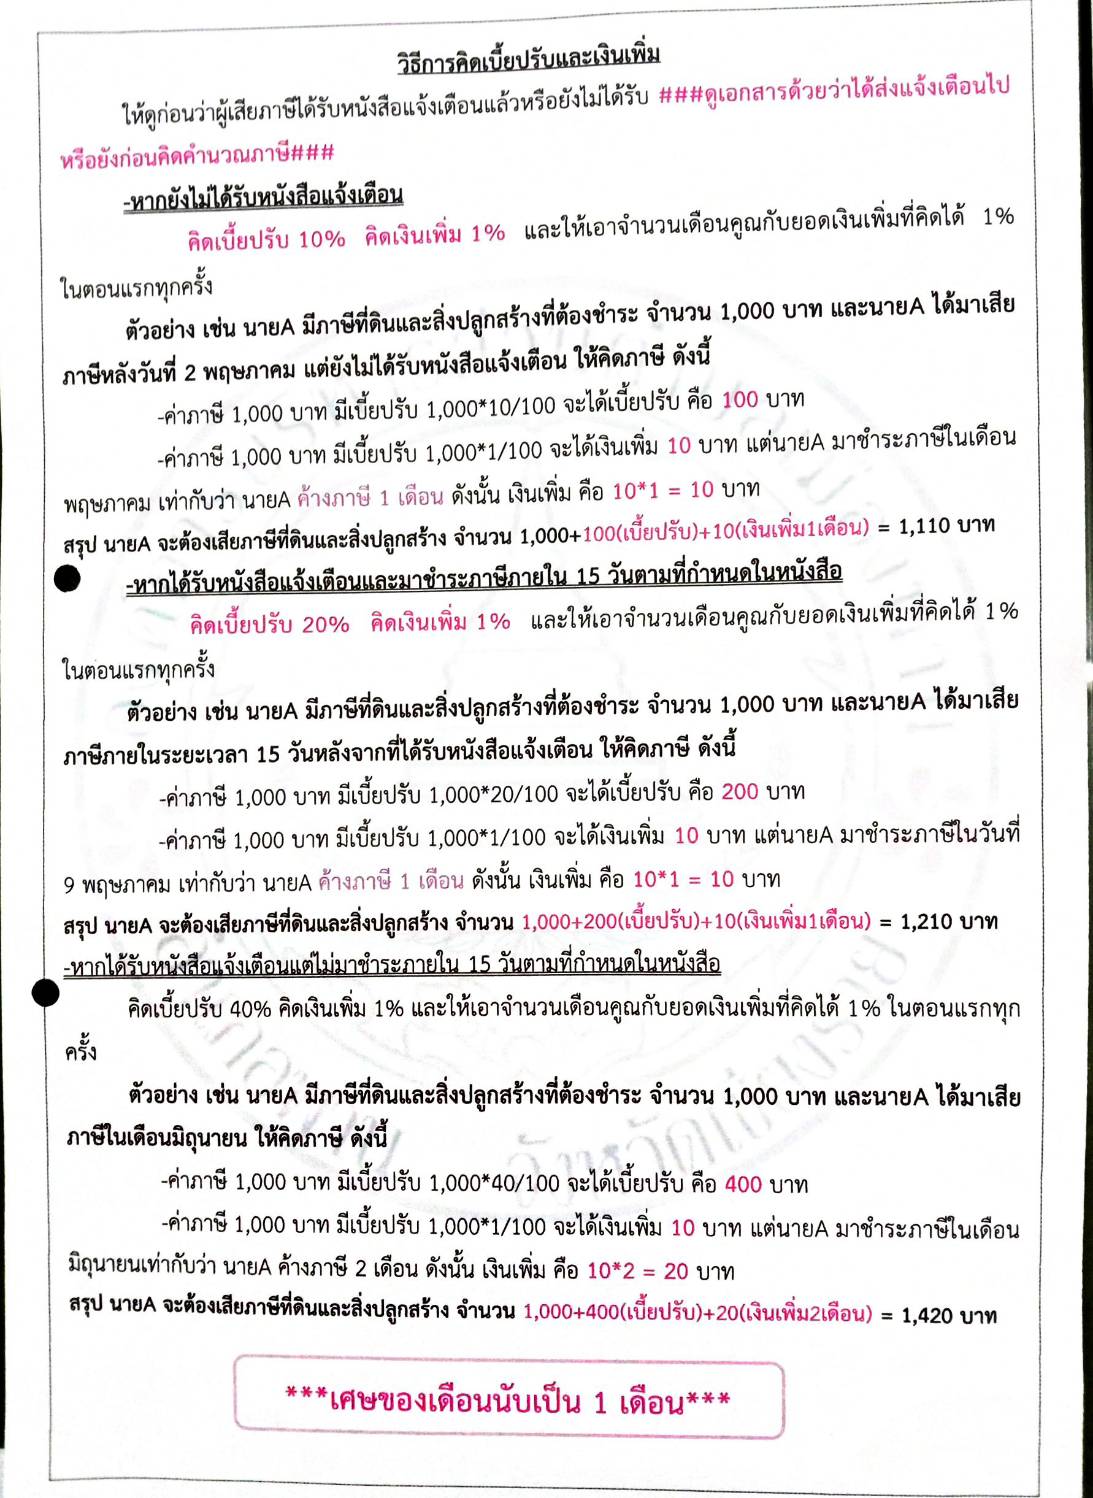 วิธีการคิดเบี้ยปรับและเงินเพิ่ม
ให้ดูก่อนว่าผู้เสียภาษีได้รับหนังสือแจ้งเตือนแล้วหรือยังไม่ได้รับ ###ดูเอกสารด้วยว่าได้ส่งแจ้งเตือนไป
หรือยังก่อนคิดคำนวณภาษี###
-หากยังไม่ได้รับหนังสือแจ้งเตือน
คิดเบี้ยปรับ 10% คิดเงินเพิ่ม 1% และให้เอาจำนวนเดือนคูณกับยอดเงินเพิ่มที่คิดได้ 1%
ในตอนแรกทุกครั้ง
ตัวอย่าง เช่น นายA มีภาษีที่ดินและสิ่งปลูกสร้างที่ต้องชำระ จำนวน 1,000 บาท และนายA ได้มาเสีย
ภาษีหลังวันที่ 2 พฤษภาคม แต่ยังไม่ได้รับหนังสือแจ้งเตือน ให้คิดภาษี ดังนี้
-ค่าภาษี 1,000 บาท มีเบี้ยปรับ 1,000*10/100 จะได้เบี้ยปรับ คือ 100 บาท
-ค่าภาษี 1,000 บาท มีเบี้ยปรับ 1,000*1/100 จะได้เงินเพิ่ม 10 บาท แต่นายA มาชำระภาษีในเดือน
พฤษภาคม เท่ากับว่า นายA ค้างภาษี 1 เดือน ดังนั้น เงินเพิ่ม คือ 10*1 = 10 บาท
สรุป นายA จะต้องเสียภาษีที่ดินและสิ่งปลูกสร้าง จำนวน 1,000+100(เบี้ยปรับ)+10(เงินเพิ่ม1เดือน) = 1,110 บาท
-หากได้รับหนังสือแจ้งเตือนและมาชำระภาษีภายใน 15 วันตามที่กำหนดในหนังสือ
คิดเบี้ยปรับ 20% คิดเงินเพิ่ม 1% และให้เอาจำนวนเดือนคูณกับยอดเงินเพิ่มที่คิดได้ 1%
ในตอนแรกทุกครั้ง
ตัวอย่าง เช่น นายA มีภาษีที่ดินและสิ่งปลูกสร้างที่ต้องชำระ จำนวน 1,000 บาท และนายA ได้มาเสีย
ภาษีภายในระยะเวลา 15 วันหลังจากที่ได้รับหนังสือแจ้งเตือน ให้คิดภาษี ดังนี้
-ค่าภาษี 1,000 บาท มีเบี้ยปรับ 1,000*20/100 จะได้เบี้ยปรับ คือ 200 บาท
-ค่าภาษี 1,000 บาท มีเบี้ยปรับ 1,000*1/100 จะได้เงินเพิ่ม 10 บาท แต่นายA มาชำระภาษีในวันที่
9 พฤษภาคม เท่ากับว่า นายA ค้างภาษี 1 เดือน ดังนั้น เงินเพิ่ม คือ 10*1 = 10 บาท
สรุป นายA จะต้องเสียภาษีที่ดินและสิ่งปลูกสร้าง จำนวน 1,000+200(เบี้ยปรับ)+10(เงินเพิ่ม1เดือน) = 1,210 บาท
-หากได้รับหนังสือแจ้งเตือนแต่ไม่มาชำระภายใน 15 วันตามที่กำหนดในหนังสือ
คิดเบี้ยปรับ 40% คิดเงินเพิ่ม 1% และให้เอาจำนวนเดือนคูณกับยอดเงินเพิ่มที่คิดได้ 1% ในตอนแรกทุก
ครั้ง
ตัวอย่าง เช่น นายA มีภาษีที่ดินและสิ่งปลูกสร้างที่ต้องชำระ จำนวน 1,000 บาท และนายA ได้มาเสีย
ภาษีในเดือนมิถุนายน ให้คิดภาษี ดังนี้
-ค่าภาษี 1,000 บาท มีเบี้ยปรับ 1,000*40/100 จะได้เบี้ยปรับ คือ 400 บาท
-ค่าภาษี 1,000 บาท มีเบี้ยปรับ 1,000*1/100 จะได้เงินเพิ่ม 10 บาท แต่นายA มาชำระภาษีในเดือน
มิถุนายนเท่ากับว่า นายA ค้างภาษี 2 เดือน ดังนั้น เงินเพิ่ม คือ 10*2 = 20 บาท
สรุป นายA จะต้องเสียภาษีที่ดินและสิ่งปลูกสร้าง จำนวน 1,000+400(เบี้ยปรับ)+20(เงินเพิ่ม2เดือน) = 1,420 บาท
***เศษของเดือนนับเป็น 1 เดือน***